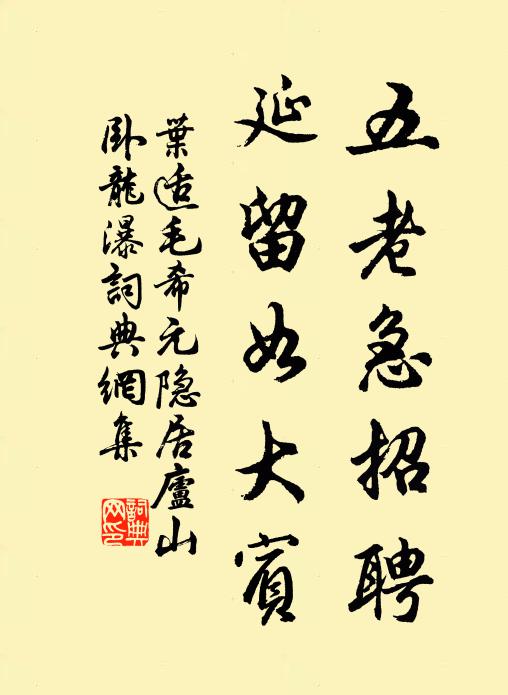 五老急招聘
延留如大賓
葉适毛希元隐居廬山
卧龍瀑詞典網集
詞典
网印